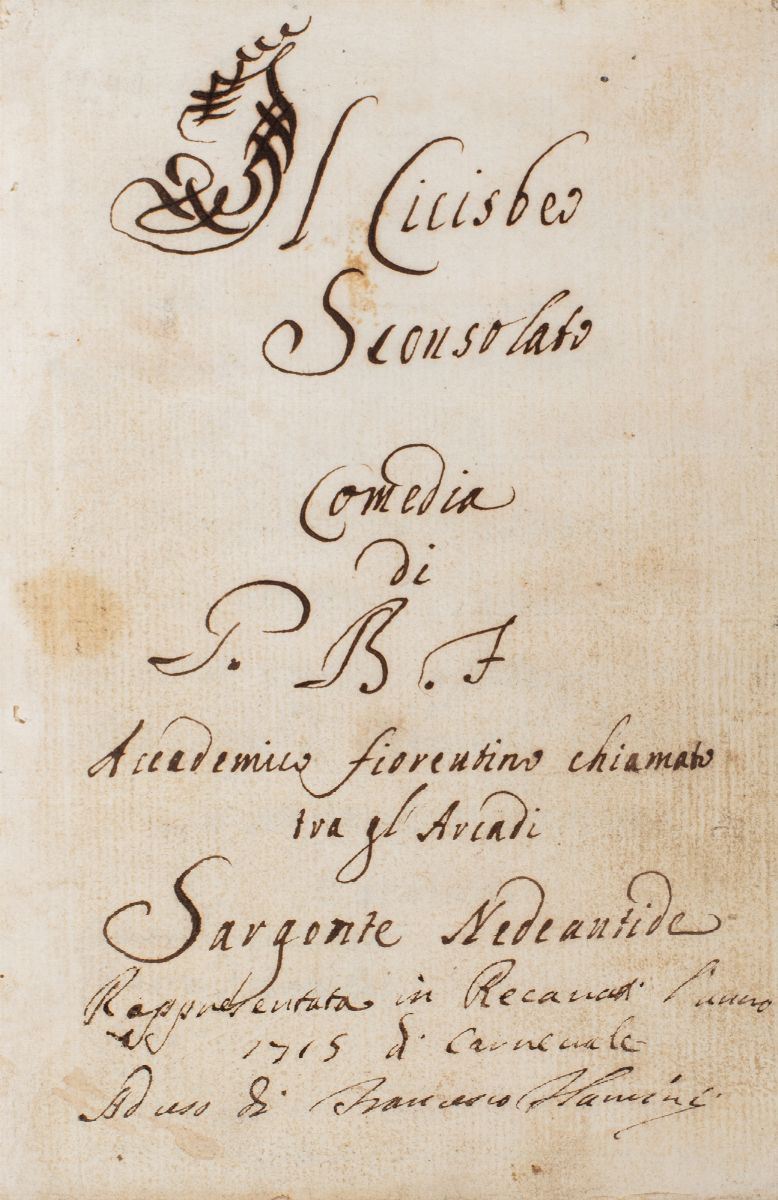 Il Cicisbeo
Sconsolato
Comedia
di
G. B. F
Accademico fiorentino chiamato
tra gl' Arcadi
Sargonte Nedeantide
Rappresentata in Recanati l'anno
1715 di Carnevale
Ad uso di Francesco